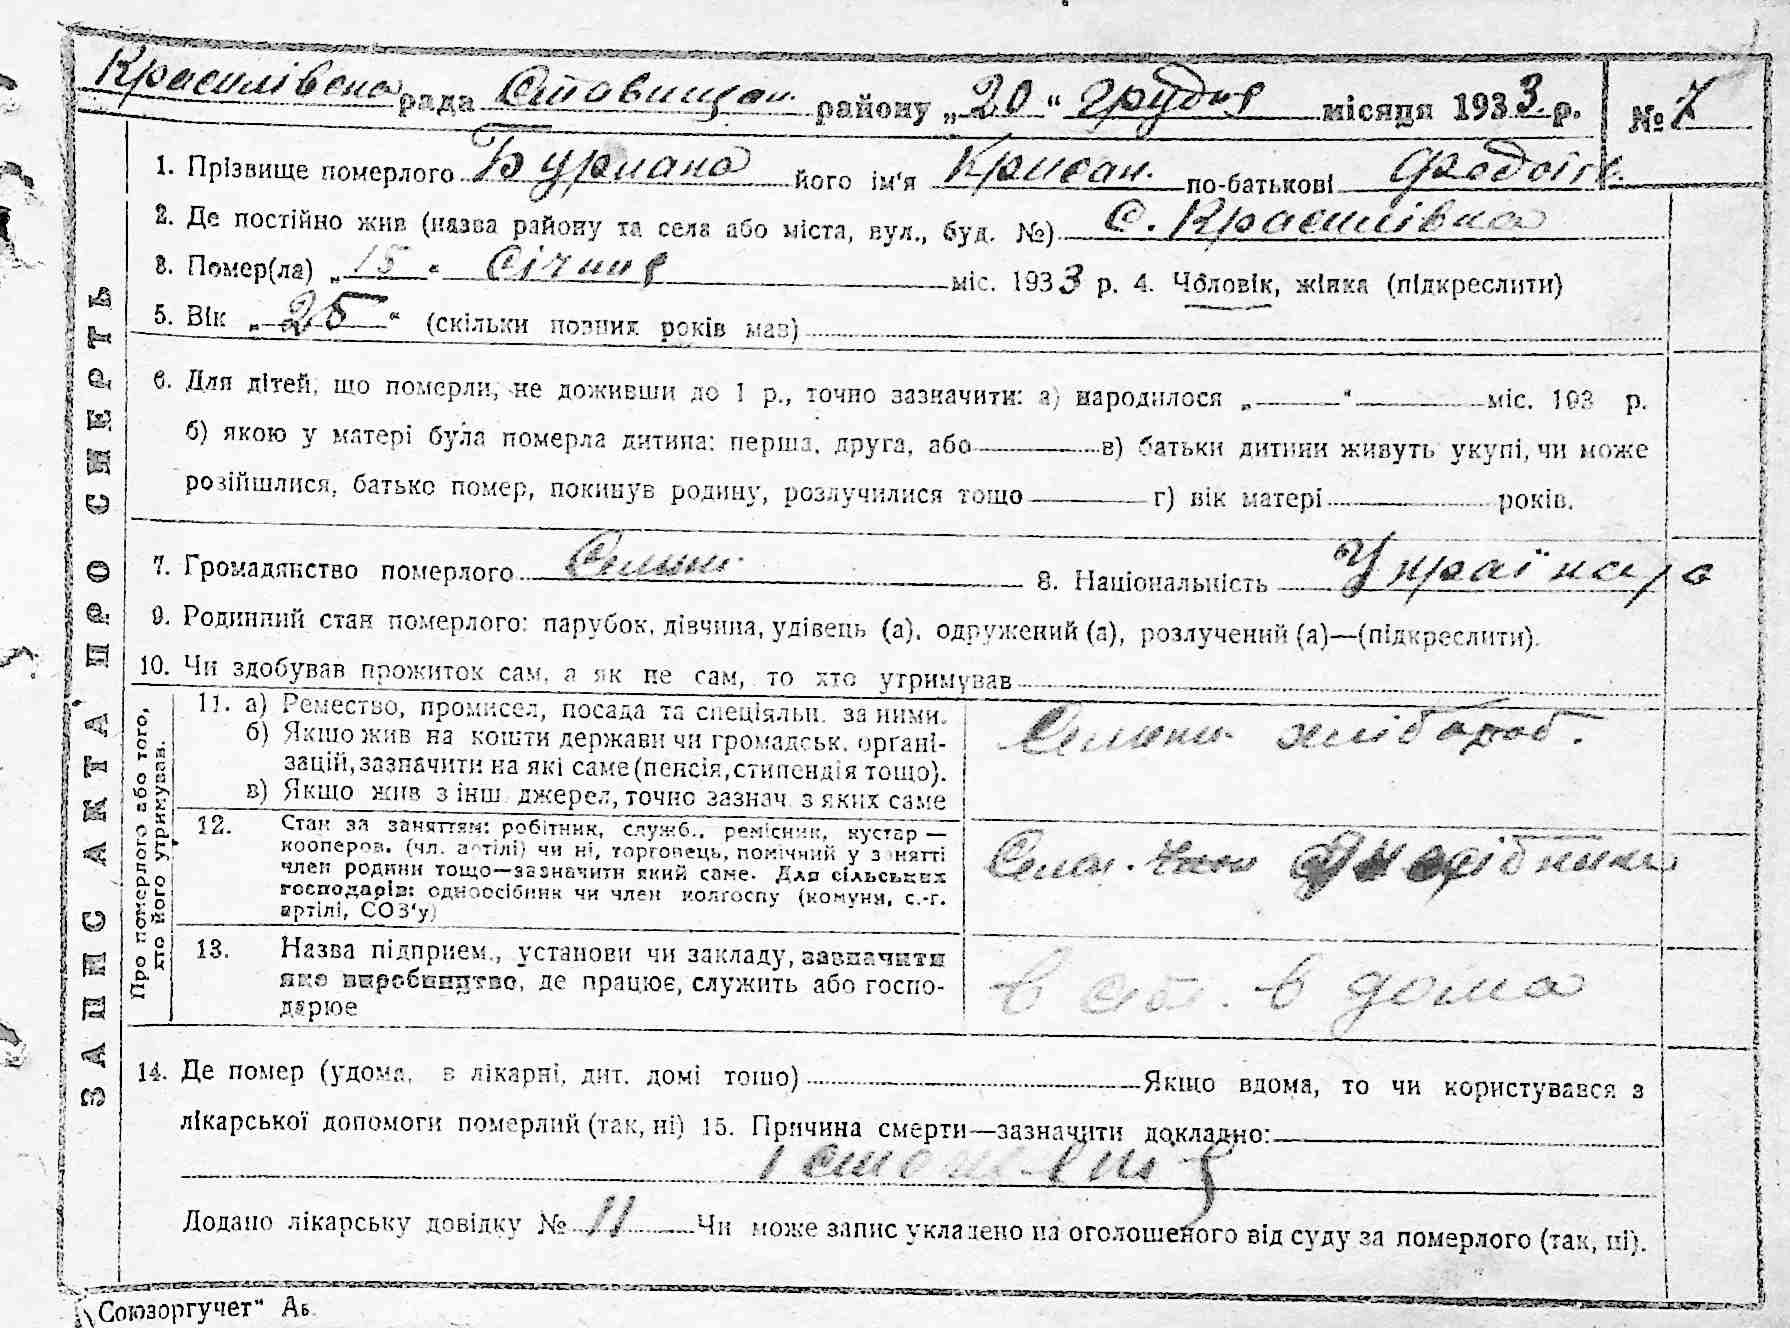 Красилівська рада Ставищан. району „20“ грудня місяця 1933 р. № 7
1. Прізвище померлого Бурлака його ім'я Крисан. по-батькові
2. Де постійно жив (назва району та села або міста, вул., буд. №) с. Красилівка
3. Помер(ла) „15“ Січня міс. 1933 р. 4. Чоловік, жінка (підкреслити)
5. Вік „25“ (скільки повних років мав)
6. Для дітей, що померли, не доживши до 1 р., точно зазначити: а) народилося „ “ міс. 193 р.
б) якою у матері була померла дитина: перша, друга, або в) батьки дитини живуть укупі, чи може
розійшлися, батько помер, покинув родину, розлучилися тощо г) вік матері років.
7. Громадянство померлого 8. Національність Українка
9. Родинний стан померлого: парубок, дівчина, удівець (а), одружений (а), розлучений (а)—(підкреслити).
10. Чи здобував прожиток сам, а як не сам, то хто утримував
ЗАПИС АКТА ПРО СМЕРТЬ
Про померлого або того,
хто його утримував.
11. а) Ремество, промисел, посада та спеціяльн. за ними.
б) Якщо жив на кошти держави чи громадськ. органі-
зацій, зазначити на які саме (пенсія, стипендія тощо).
в) Якщо жив з інш. джерел, точно зазнач. з яких саме
Селянин хлібороб.
12. Стан за заняттям: робітник, служб., ремісник, кустар —
кооперов. (чл. артілі) чи ні, торговець, помічний у занятті
член родини тощо—зазначити який саме. Для сільських
господарів: одноосібник чи член колгоспу (комуни, с.-г.
артілі, СОЗ'у)
Селян.
13. Назва підприєм., установи чи закладу, зазначити
яке виробництво, де працює, служить або госпо-
дарює
в в дома
14. Де помер (удома, в лікарні, дит. домі тощо) Якщо вдома, то чи користувався з
лікарської допомоги померлий (так, ні) 15. Причина смерти—зазначити докладно:
Додано лікарську довідку № 11 Чи може запис укладено на оголошеного від суду за померлого (так, ні).
„Союзоргучет“